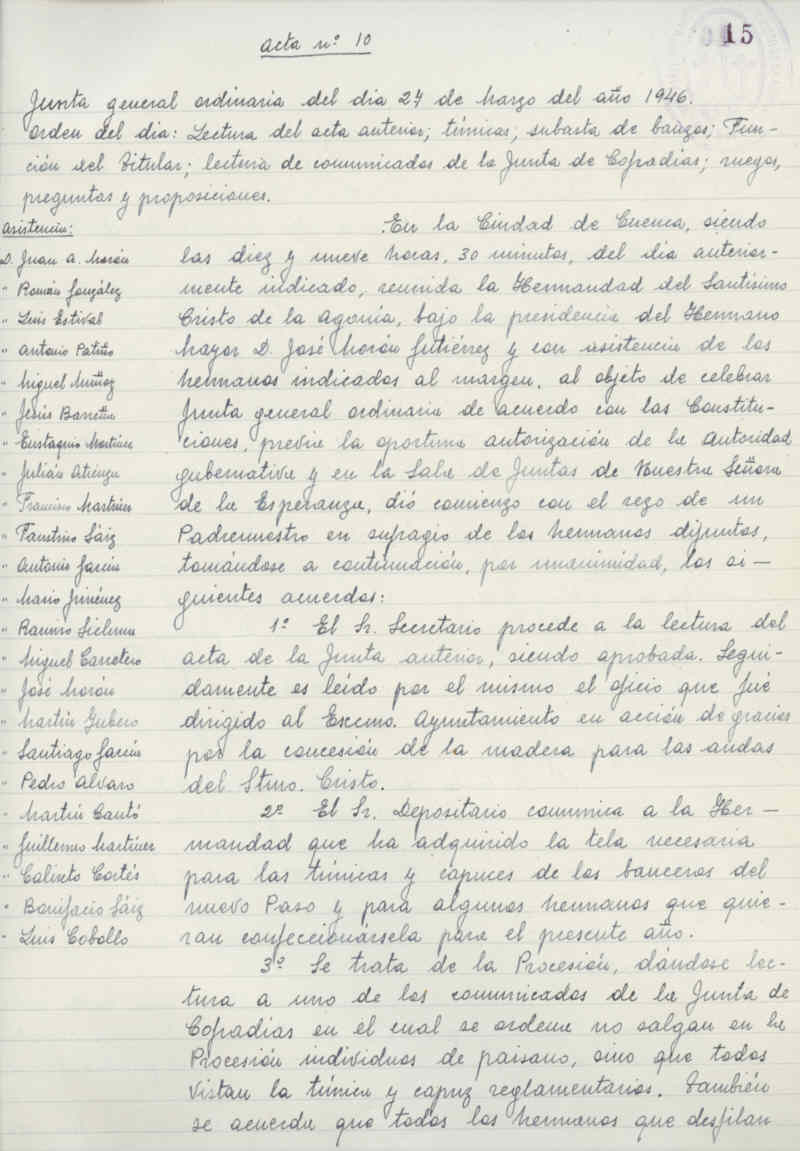 15
Acta nº 10
Junta general ordinaria del dia 27 de Marzo del año 1946.
Orden del dia: Lectura del acta anterior; túnicas; subasta de banzos; Fun-
ción del Titular; lectura de comunicados de la Junta de Cofradías; ruegos,
preguntas y proposiciones.
Asistencia:
D. Juan A. Morón
" Román González
" Luis Estival
" Antonio Patiño
" Miguel Muñoz
" Jesús
" Eustaquio Martínez
" Julián Atienza
" Francisco Martínez
" Faustino Sáiz
" Antonio García
" Mario Jiménez
" Ramiro
" Miguel Carretero
" José Morón
" Martín Gubero
" Santiago García
" Pedro Alvaro
" Martín Cantó
" Guillermo Martínez
" Calixto Cortés
" Bonifacio Sáiz
" Luis Cobollo
En la Ciudad de Cuenca, siendo
las diez y nueve horas, 30 minutos, del dia anterior-
mente indicado, reunida la Hermandad del Santísimo
Cristo de la Agonía, bajo la presidencia del Hermano
Mayor D. José Morón Gutiérrez y con asistencia de los
hermanos indicados al margen, al objeto de celebrar
Junta general ordinaria de acuerdo con las Constitu-
ciones, previa la oportuna autorización de la Autoridad
gubernativa y en la Sala de Juntas de Nuestra Señora
de la Esperanza, dió comienzo con el rezo de un
Padrenuestro en sufragio de los hermanos difuntos,
tomándose a continuación, por unanimidad, los si-
guientes acuerdos:
1º El Sr. Secretario procede a la lectura del
acta de la Junta anterior, siendo aprobada. Segui-
damente es leído por el mismo el oficio que fué
dirigido al Excmo. Ayuntamiento en acción de gracias
por la concesión de la madera para las andas
del Stmo. Cristo.
2º El Sr. Depositario comunica a la Her-
mandad que ha adquirido la tela necesaria
para las túnicas y capuces de los banceros del
nuevo Paso y para algunos hermanos que quie-
ran confeccionársela para el presente año.
3º Se trata de la Procesión, dándose lec-
tura a uno de los comunicados de la Junta de
Cofradías en el cual se ordena no salgan en la
Procesión individuos de paisano, sino que todos
vistan la túnica y capuz reglamentarios. También
se acuerda que todos los hermanos que desfilan